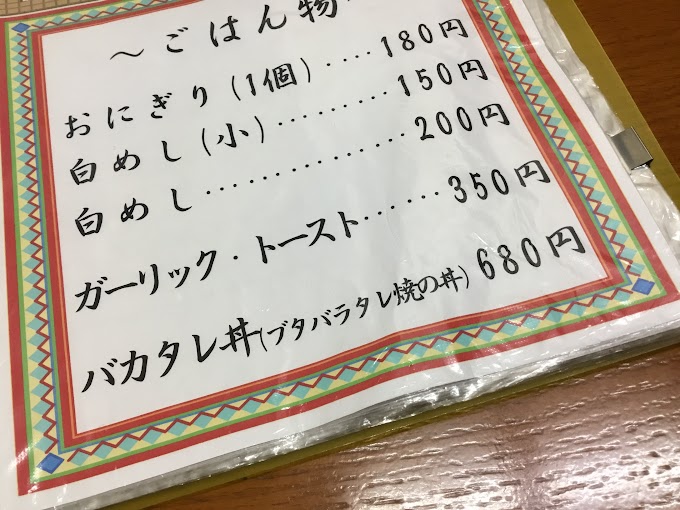 ～ごはん物
おにぎり(1個)‥‥180円
白めし(小)‥‥‥‥‥150円
白めし‥‥‥‥‥‥‥‥200円
ガーリック・トースト‥‥‥350円
バカタレ丼(ブタバラタレ焼の丼)680円